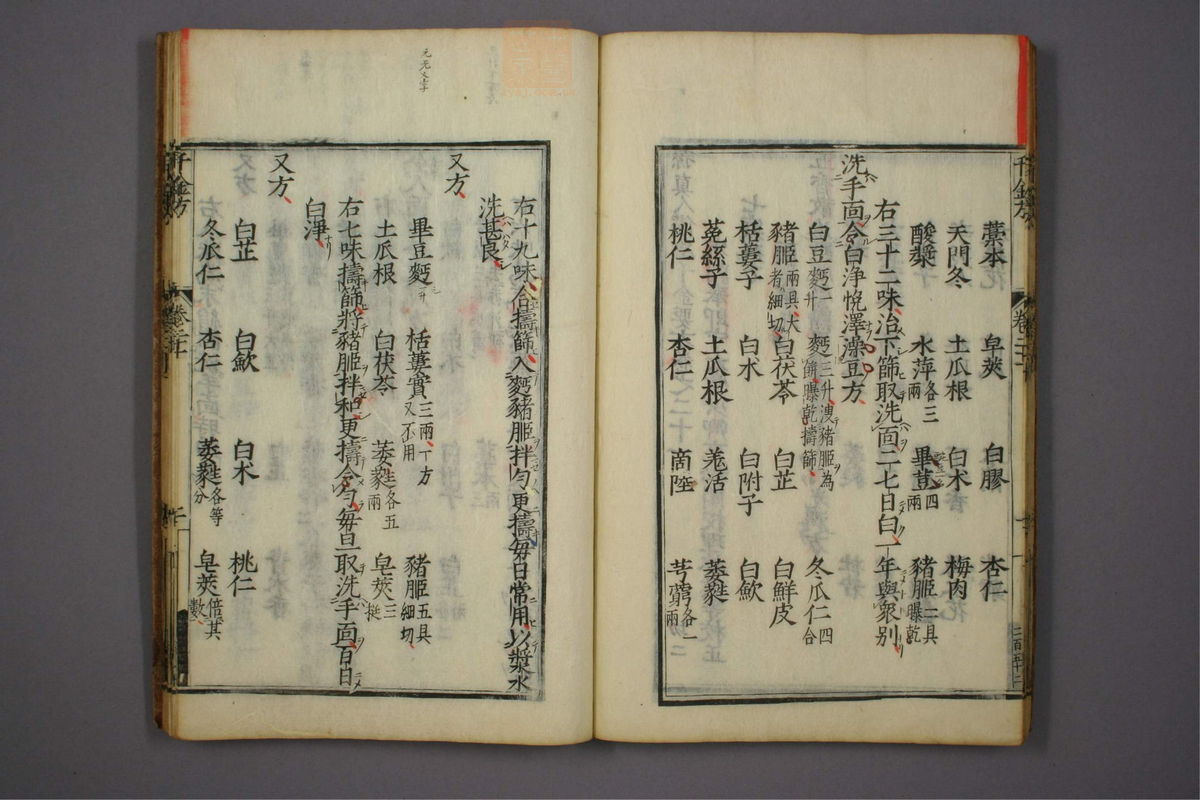 千金方
藁本 皁莢 白膠 杏仁
天門冬 土瓜根 白术 梅肉
酸漿 水萍各三兩 畢荳四兩 豬胵二具曝乾
右三十二味治下篩取洗面二七日白一年與衆別
洗手面令白浄悅澤澡豆方
白豆麪一升 麪三升溲豬胵為餅曝乾擣篩 冬瓜仁四合
豬胵兩具大者細切 白茯苓 白芷 白鮮皮
栝蔞子 白术 白附子 白歛
菟絲子 土瓜根 羗活 葳蕤
桃仁 杏仁 商陸 芎藭各一兩
右十九味合擣篩入麪豬胵拌勻更擣每日常用以漿水
洗甚良
又方
畢豆麪一升 栝蔞實三兩一方又不用 豬胵五具細切
土瓜根 白茯苓 葳蕤各五兩 皂莢三挺
右七味擣篩將豬胵拌和更擣令勻每旦取洗手面百日
白淨
又方
白芷 白歛 白术 桃仁
冬瓜仁 杏仁 葳蕤各等分 皂莢倍其數
千金方